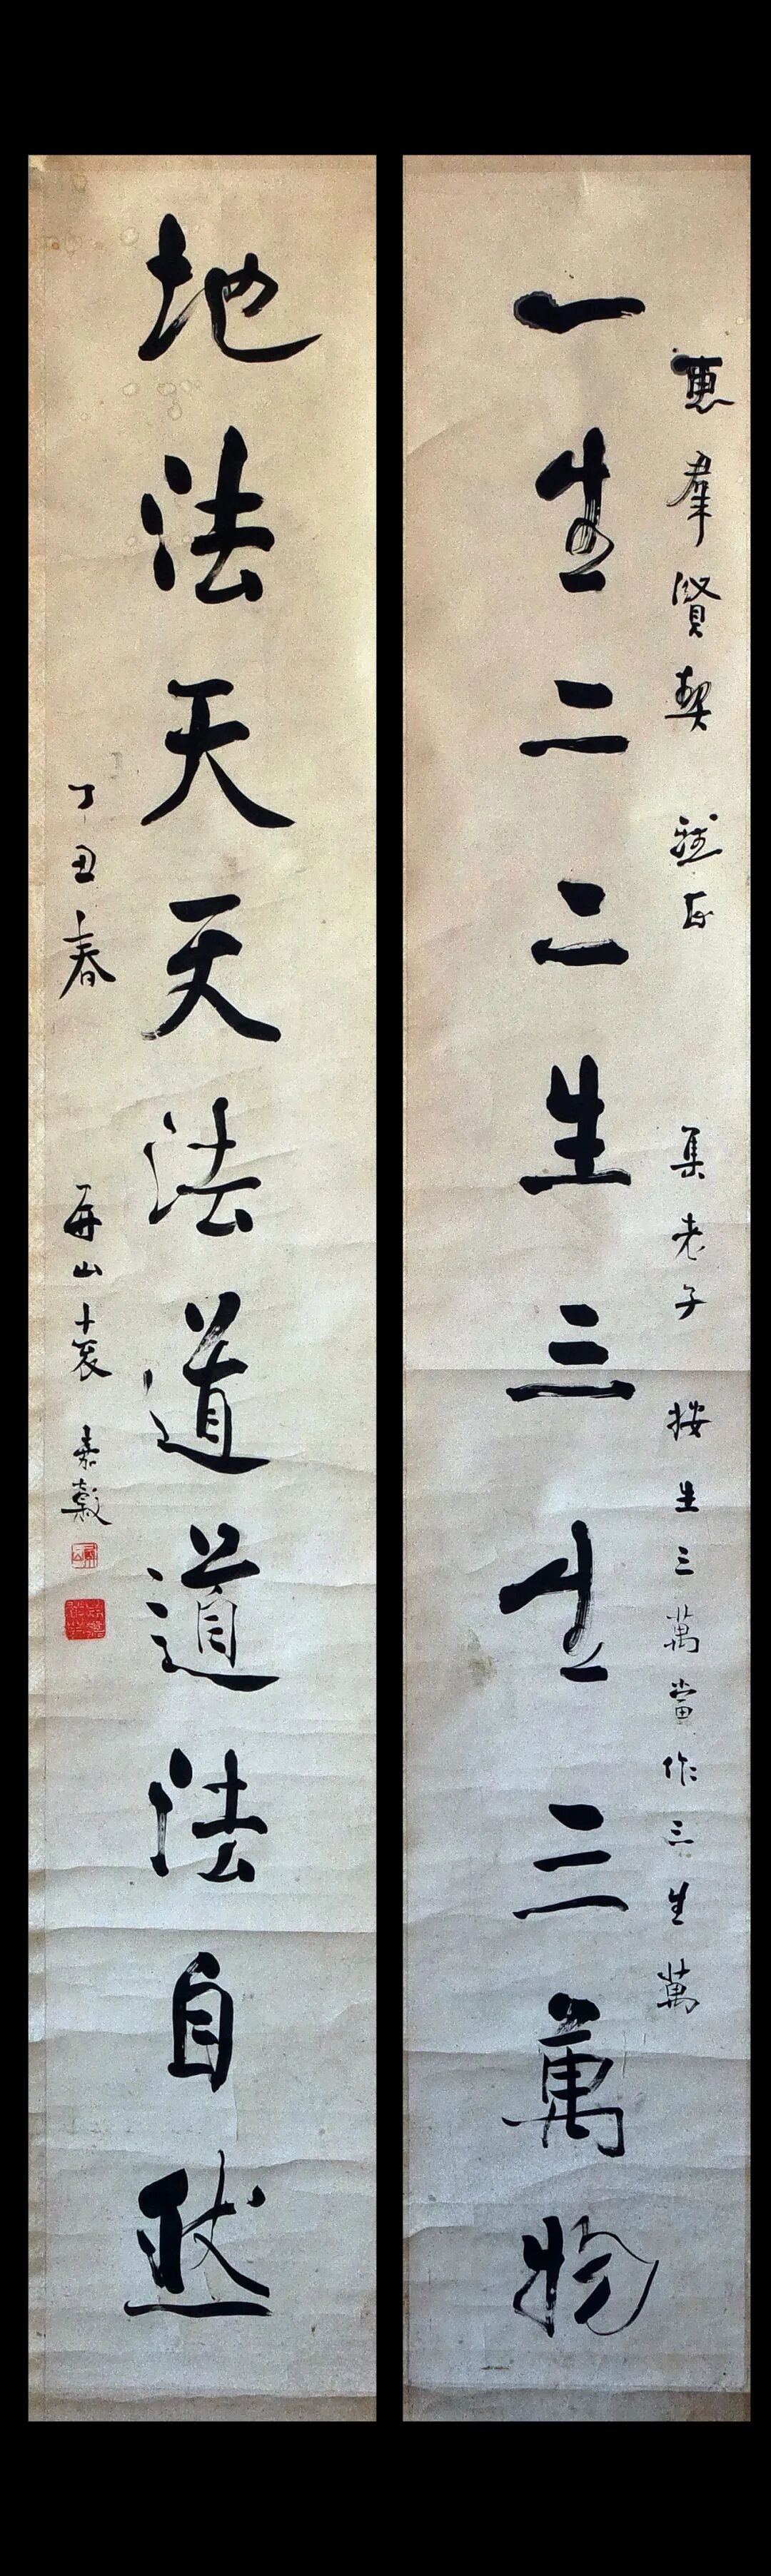 惠羣賢契 集老子 按生三萬當作三生萬
一生二二生三生三萬物
地法天天法道道法自然
丁丑春 屏山袁嘉穀